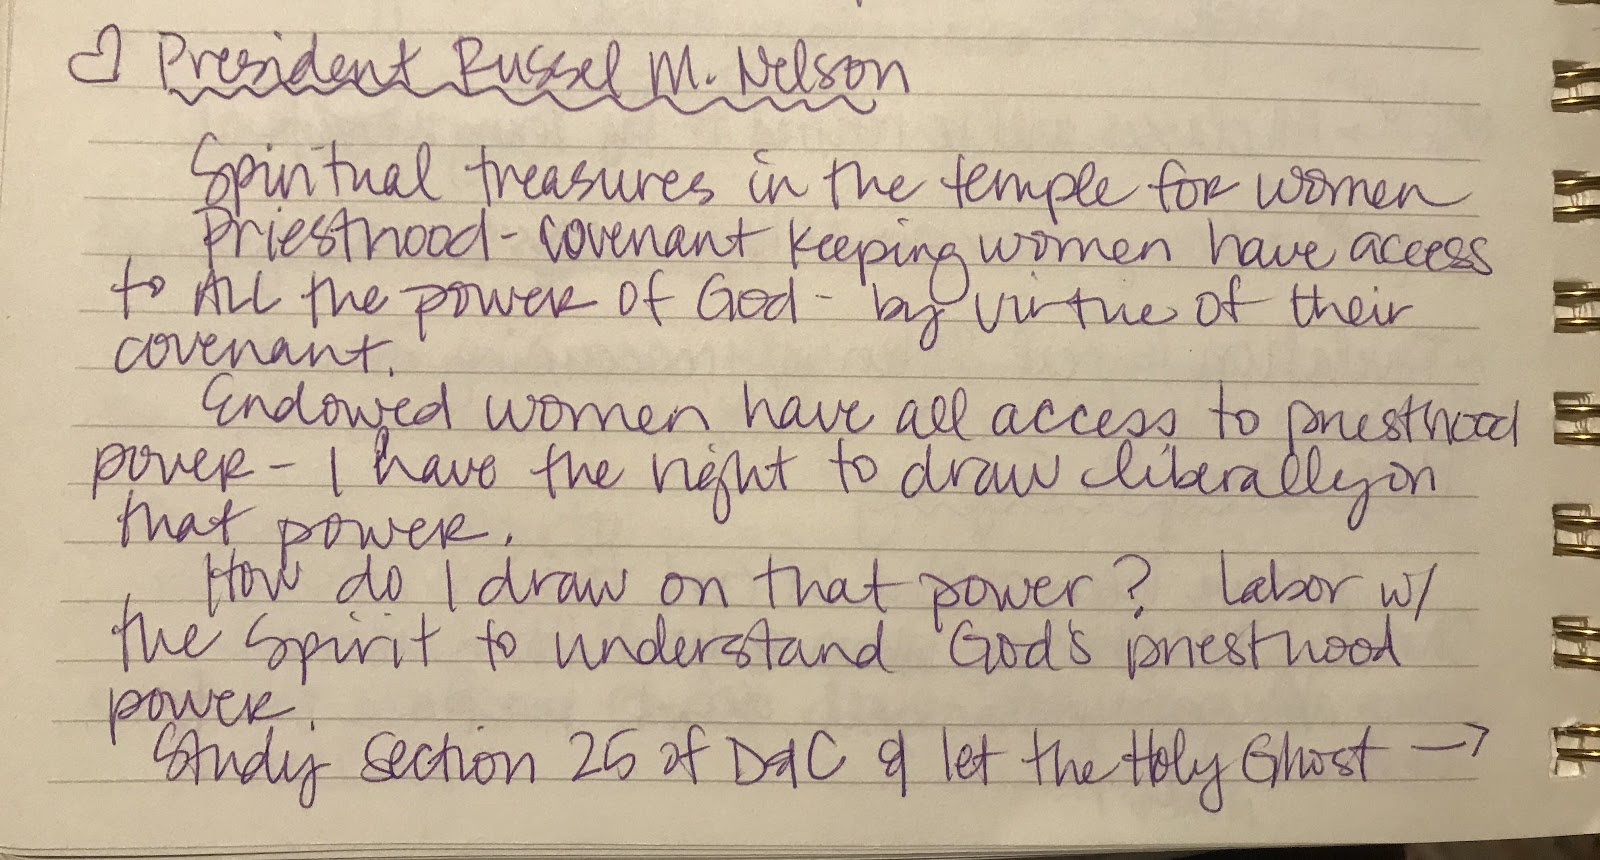 ♡ President Russel M. Nelson
Spiritual treasures in the temple for women
Priesthood - covenant keeping women have access
to ALL the power of God - by virtue of their
covenant.
Endowed women have all access to priesthood
power - I have the right to draw liberally on
that power.
How do I draw on that power? Labor w/
the Spirit to understand God's priesthood
power.
Study section 25 of D&C & let the Holy Ghost →